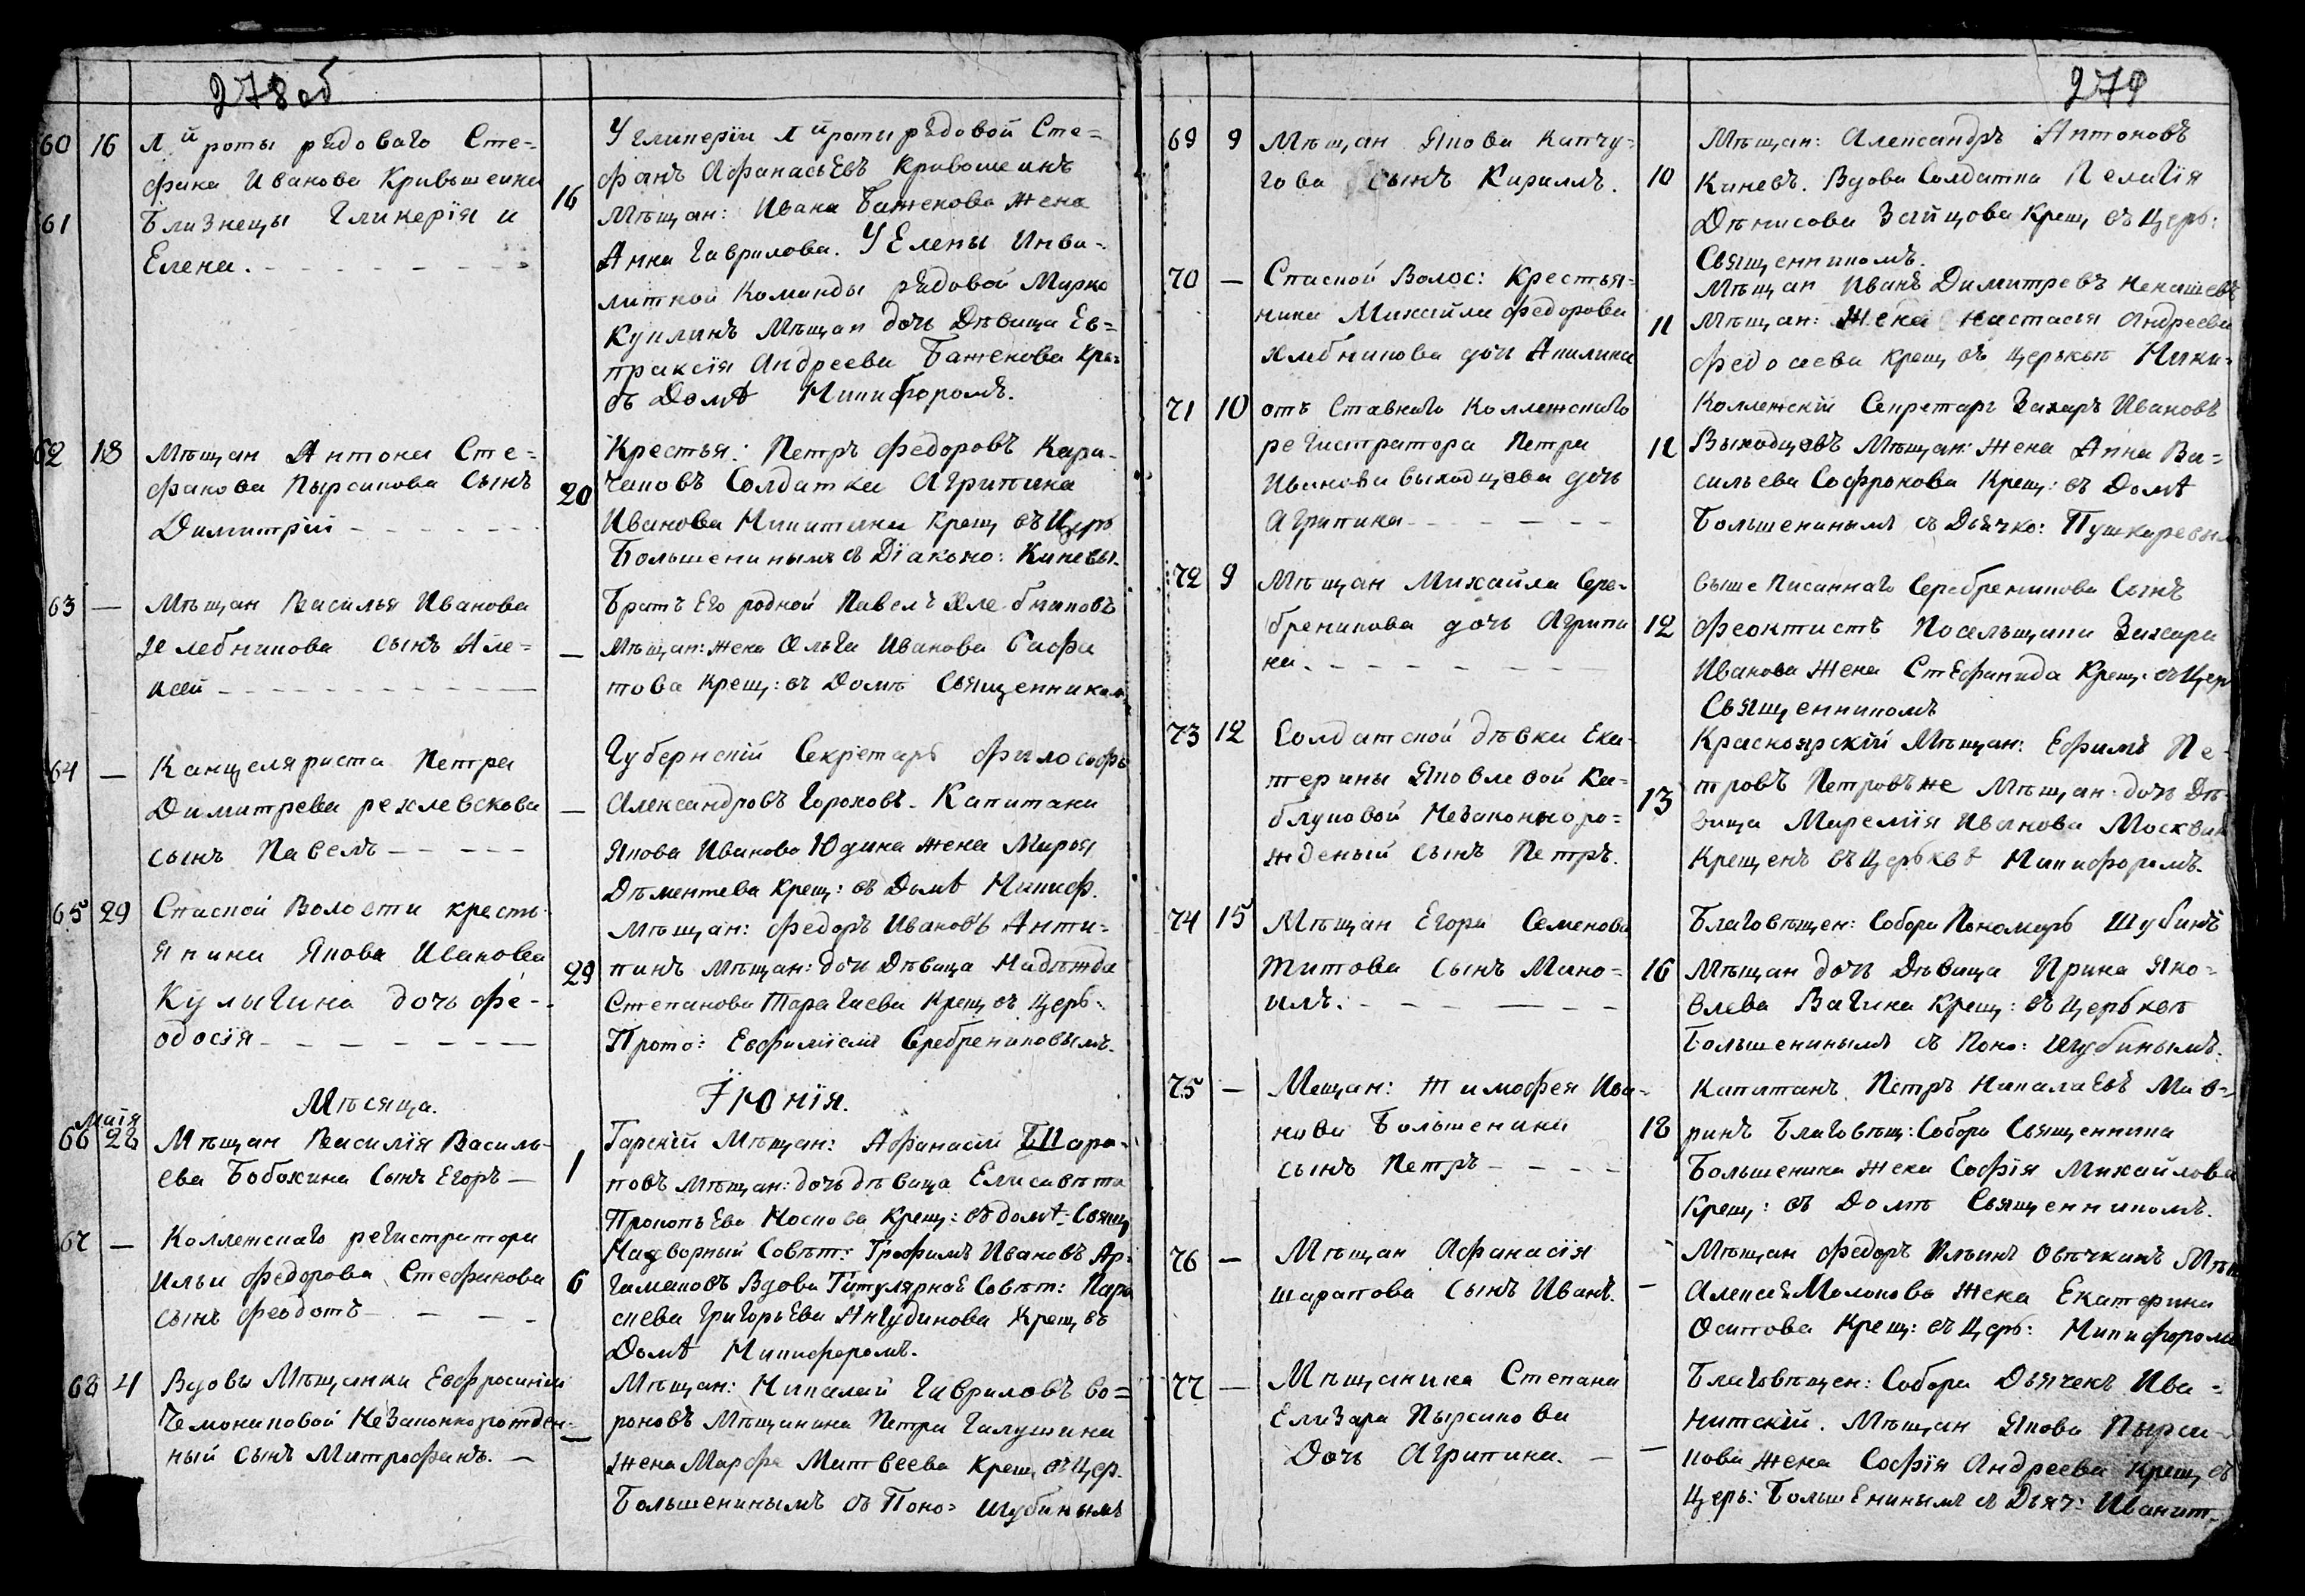 278об
60 16 Л й роты рядоваго Сте=
фана Иванова Кривошеина
61 Близнецы Гликерія и
Елена.
16
У Гликеріи Л й роты рядовой Сте=
фанъ Афанасьевъ Кривошеинъ
Мѣщан: Ивана Баженова жена
Анна Гаврилова. У Елены Инва-
литной Команды рядовой Марко
Куклинъ Мѣщан дочь Дѣвица Ев=
праксія Андреева Баженова кре-
въ Домѣ Никифоромъ.
62 18 Мѣщан Антона Сте=
фанова Пырсикова Сынъ
Димитрій
20
Крестья: Петръ Федоровъ Кара-
чаковъ Солдатка Агрипина
Иванова Никитина Крещ въ Церь
Большенинымъ съ Діаконо: Киневы.
63 — Мѣщан Василья Иванова
Хлебникова сынъ Але=
ксей
—
Братъ Его родной Павелъ Хлебниковъ
Мѣщан: жена Ольга Иванова Сафа
това Крещ: въ Домѣ Священникам
64 — Канцеляриста Петра
Димитрева рехлевскова
сынъ Павелъ
—
Губернскій Секретарь Философъ
Александровъ Гороховъ. Капитана
Якова Иванова Юдина жена Марья
Дѣментева Крещ: въ Домѣ Никиф.
65 29 Спаской Волости крестъ-
янина Якова Иванова
Кулагина дочь Фе-
одосія
29
Мѣщан: Федоръ Ивановъ Анти=
пинъ Мѣщан: дочи Дѣвица Надѣжда
Степанова Тарагаева Крещ въ Церь:
Прото: Евфиміемъ Серебрениковымъ.
Мѣсяца.
Їюнія.
Маія
66 28 Мѣщан Василія Василь-
ева Бобокина Сынъ Егоръ —
1
Тарскій Мѣщан: Афанасій Шара-
повъ Мѣщан: дочь дѣвица Елисавѣта
Прокопьева Носкова Крещ: въ домѣ: Свящ
67 — Коллежскаго регистратора
Ильи Федорова Стефанова
сынъ Феодотъ
6
Надворный Совѣт: Трофимъ Ивановъ Ар-
гамаковъ Вдова Титулярнаъ Совѣт: Пара
скева Григорьева Ангудинова Крещ въ
Домѣ Никифоромъ.
68 4 Вдовы Мѣщанки Евфросиніи
Чемониковой Незаконнорожден-
ный сынъ Митрофанъ. —
—
Мѣщан: Николай Гавриловъ во=
роновъ Мѣщанина Петра Галушина
жена Марфа Матвеева Крещ въ Цер.
Большенинымъ съ Поно: Шубинымъ
279
69 9 Мѣщан Якова Капчу-
гова сынъ Кириллъ.
10
Мѣщан: Александръ Антоновъ
Киневъ. Вдова Солдатка Пелагія
Дѣнисова Зайцова Крещ въ Церь:
Священникомъ.
70 — Спаской Волос: Крестья-
нина Михайла Федорова
Хлебникова дочь Акилина
11
Мѣщан Иванъ Димитревъ Ненашевъ
Мѣщан: Жена Настасья Андреева
Федосеева Крещ въ церьквѣ Ники-
71 10 отъ Ставнаго Коллежскаго
регистратора Петра
Иванова выходцева дочь
Агрипина
11
Коллежскій Секретарь Захаръ Ивановъ
Выходцевъ Мѣщан: жена Анна Ва=
сильева Софронова Крещ: въ Домѣ
Большенинымъ съ Дьячко: Пушкаревым
72 9 Мѣщан Михайла Сере-
бреникова дочь Агрипи
на.
12
выше писаннаго Серебреникова Сынъ
Феоктистъ Посельщика Захара
Иванова жена Стефанида Крещ: въ Цер
Священникомъ
73 12 Солдатской дѣвки Ека-
терины Яковлевой Ка-
блуковой Незаконноро=
жденый сынъ Петръ.
13
Красноярскій Мѣщан: Ефимъ Пе-
тровъ Петровъ же Мѣщан: дочь Дѣ-
вица Маремія Иванова Москвин
Крещенъ въ Церьквѣ Никифоромъ.
74 15 Мѣщан Егора Семенова
Титова сынъ Мано=
илъ.
16
Благовѣщен: Собора Пономарь Шубинъ
Мѣщан дочь Дѣвица Ирина Яко=
влева Вагина Крещ: въ Церьквѣ
Большенинымъ съ Поно: Шубинымъ.
75 — Мещан: Тимофея Ива-
нова Большенина
сынъ Петръ
18
Капитанъ Петръ Никалаевъ Мав=
ринъ Благовѣщ: Собора Священника
Большенина жена Софія Михайлова
Крещ: въ Домѣ Священникомъ.
76 — Мѣщан Афанасія
шарапова Сынъ Иванъ.
—
Мѣщан Федоръ Ильинъ Овѣчкинъ Мѣщ
Алексея Молокова жена Екатерина
Осипова Крещ: въ Церь: Никифором
77 — Мѣщанина Степана
Елизара Пырсикова
Дочь Агрипина. —
—
Благовѣщен: Собора Дьячекъ Ива=
нитскій. Мѣщан Якова Пырси-
кова жена Софія Андреева Крещ въ
Церь: Большенинымъ съ Дьяч: Иванит-